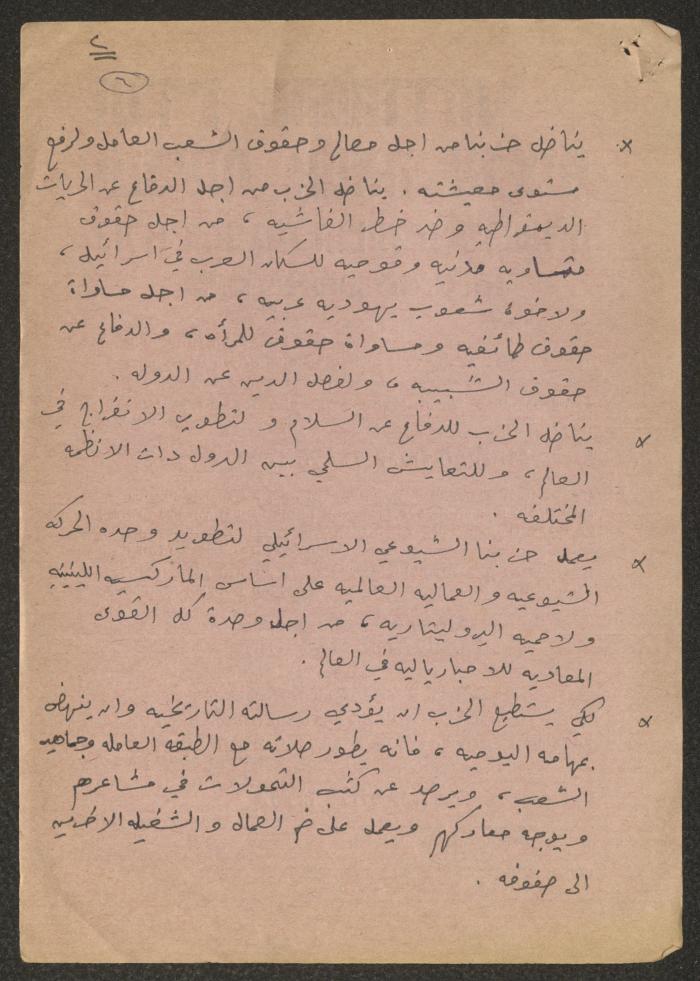 ٢
٦
× يناضل حزبنا من اجل مصالح وحقوق الشعب العامل ولرفع
مستوى معيشته . يناضل الحزب من اجل الدفاع عن الحريات
الديمقراطيه وضد خطر الفاشيه ، من اجل حقوق
متساويه مدنيه وقوميه للسكان العرب في اسرائيل ،
ولاخوة شعوب يهوديه عربيه ، من اجل مساواة
حقوق طائفيه ومساواة حقوق للمرأه ، والدفاع عن
حقوق الشبيبه ، ولفصل الدين عن الدوله .
× يناضل الحزب للدفاع عن السلام و لتطوير الانفراج في
العالم ، وللتعايش السلمي بين الدول ذات الانظمه
المختلفه .
× يعمل حزبنا الشيوعي الاسرائيلي لتطويد وحده الحركه
الشيوعيه والعماليه العالميه على اساس الماركسيه اللينينيه
ولامميه البروليتاريه ، من اجل وحدة كل القوى
المعاديه للامبرياليه في العالم .
× لكي يستطيع الحزب ان يؤدي رسالته التاريخيه وان ينهض
بمهامه اليوميه ، فانه يطور صلاته مع الطبقه العامله وجماهير
الشعب ، ويرصد عن كثب التحولات في مشاعرهم
ويوجه معاركهم ويعمل على ضم العمال والشغيله الاخرين
الى صفوفه .